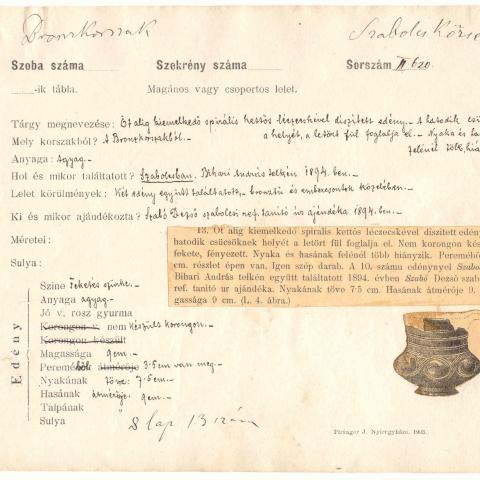 Bronzkorszak
Szabolcs Közs
Szoba száma
Szekrény száma
Sorszám II 620.
-ik tábla.
Magános vagy csoportos lelet.
Tárgy megnevezése: Öt alig kiemelkedő spirális kettős léczecskével díszített edény. A hatodik csú
Mely korszakból? A Bronzkorszakból. a helyét, a letört fül foglalja el. Nyaka és ha
Anyaga: agyag. felénél több hiá
Hol és mikor találtatott? Szabolcsban. Bihari András telkén 1894. ben.
Lelet körülmények: Két edény együtt találtatott, bronztű és embercsontok közelében.
Ki és mikor ajándékozta? Szabó Dezső szabolcsi ref. tanító úr ajándéka 1894. ben.
Méretei:
Sulya:
13. Öt alig kiemelkedő spiralis kettős léczecskével díszített edény
hatodik csücsöknek helyét a letört fül foglalja el. Nem korongon kés
fekete, fényezett. Nyaka és hasának felénél több hiányzik. Peremébő
cm. részlet épen van. Igen szép darab. A 10. számu edénynyel Szabo
Bihari András telkén együtt találtatott 1894. évben Szabó Dezső szab
ref. tanitó ur ajándéka. Nyakának töve 7·5 cm. Hasának átmérője 9.
gassága 9 cm. (L. 4. ábra.)
Edény
Szine fekete szinke.
Anyaga agyag.
Jó v. rosz gyurma
Korongon v. nem készült korongon.
Korongon készült
Magassága 9cm.
Pereméből átmérője 3·5cm van meg.
Nyakának töve: 7·5cm.
Hasának átmérője: 9cm.
Talpának "
Sulya
8 lap 13 szám
Piringer J. Nyiregyháza. 1903.